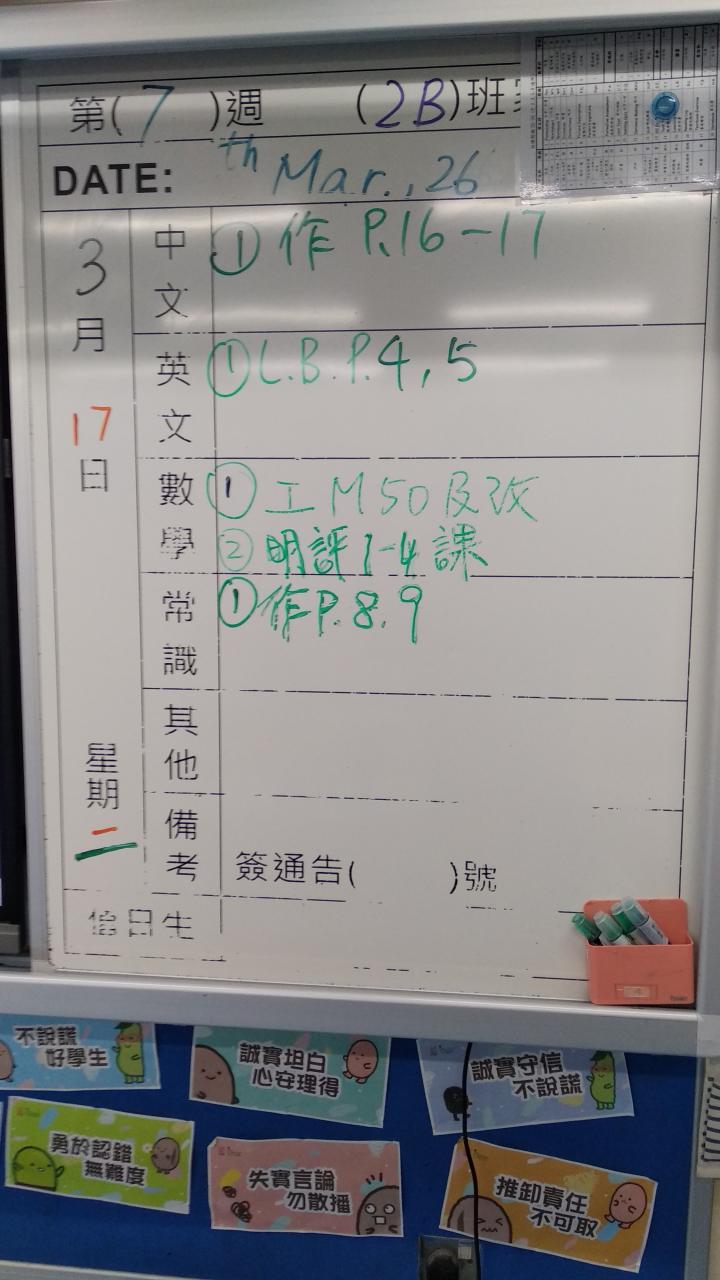 第( 7 )週 (2B)班
DATE: th Mar., 26
3月17日 星期二
中文 ① 作 P.16-17
英文 ① L.B. P.4, 5
數學 ① 工 M50及改
② 明評 1-4 課
常識 ① 作P. 8. 9
其他
備考 簽通告( )號
值日生
不說謊
好學生
誠實坦白
心安理得
誠實守信
不說謊
勇於認錯
無難度
失實言論
勿散播
推卸責任
不可取